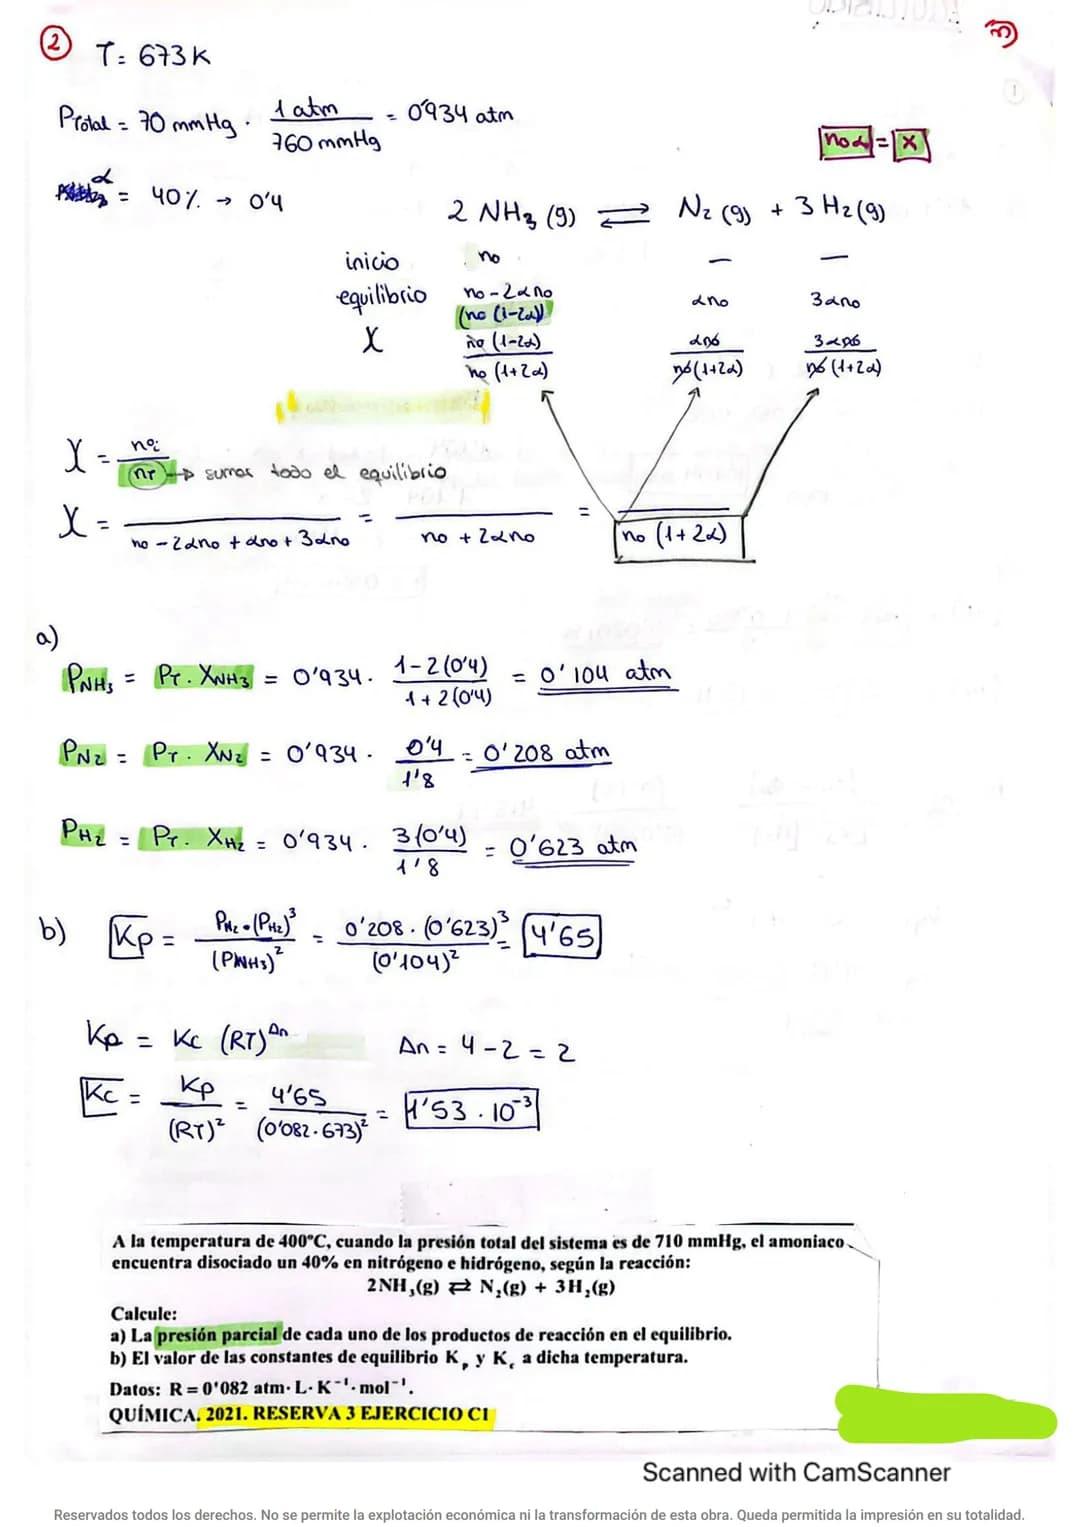 2 T = 673 K
3
1
P total = 70 mmHg · 1 atm / 760 mmHg = 0'934 atm
noα = X
α = 40% → 0'4
2 NH3 (g) ⇌ N2 (g) + 3 H2 (g)
inicio no — —
equilibrio no - 2αno αno 3αno
(no (1-2α))
X no (1-2α) / no (1+2α) αno / no (1+2α) 3αno / no (1+2α)
X = ni / nT → sumar todo el equilibrio
X = ___ / no - 2αno + αno + 3αno = ___ / no + 2αno = ___ / no (1+2α)
a)
PNH3 = PT · XNH3 = 0'934 · 1-2(0'4) / 1+2(0'4) = 0'104 atm
PN2 = PT · XN2 = 0'934 · 0'4 / 1'8 = 0'208 atm
PH2 = PT · XH2 = 0'934 · 3(0'4) / 1'8 = 0'623 atm
b) Kp = PN2 · (PH2)³ / (PNH3)² = 0'208 · (0'623)³ / (0'104)² = 4'65
Kp = Kc (RT)^Δn Δn = 4 - 2 = 2
Kc = Kp / (RT)² = 4'65 / (0'082 · 673)² = 1'53 · 10⁻³
A la temperatura de 400ºC, cuando la presión total del sistema es de 710 mmHg, el amoniaco
encuentra disociado un 40% en nitrógeno e hidrógeno, según la reacción:
2NH3(g) ⇌ N2(g) + 3H2(g)
Calcule:
a) La presión parcial de cada uno de los productos de reacción en el equilibrio.
b) El valor de las constantes de equilibrio Kp y Kc a dicha temperatura.
Datos: R = 0'082 atm· L· K⁻¹· mol⁻¹.
QUÍMICA. 2021. RESERVA 3 EJERCICIO C1
Scanned with CamScanner
Reservados todos los derechos. No se permite la explotación económica ni la transformación de esta obra. Queda permitida la impresión en su totalidad.